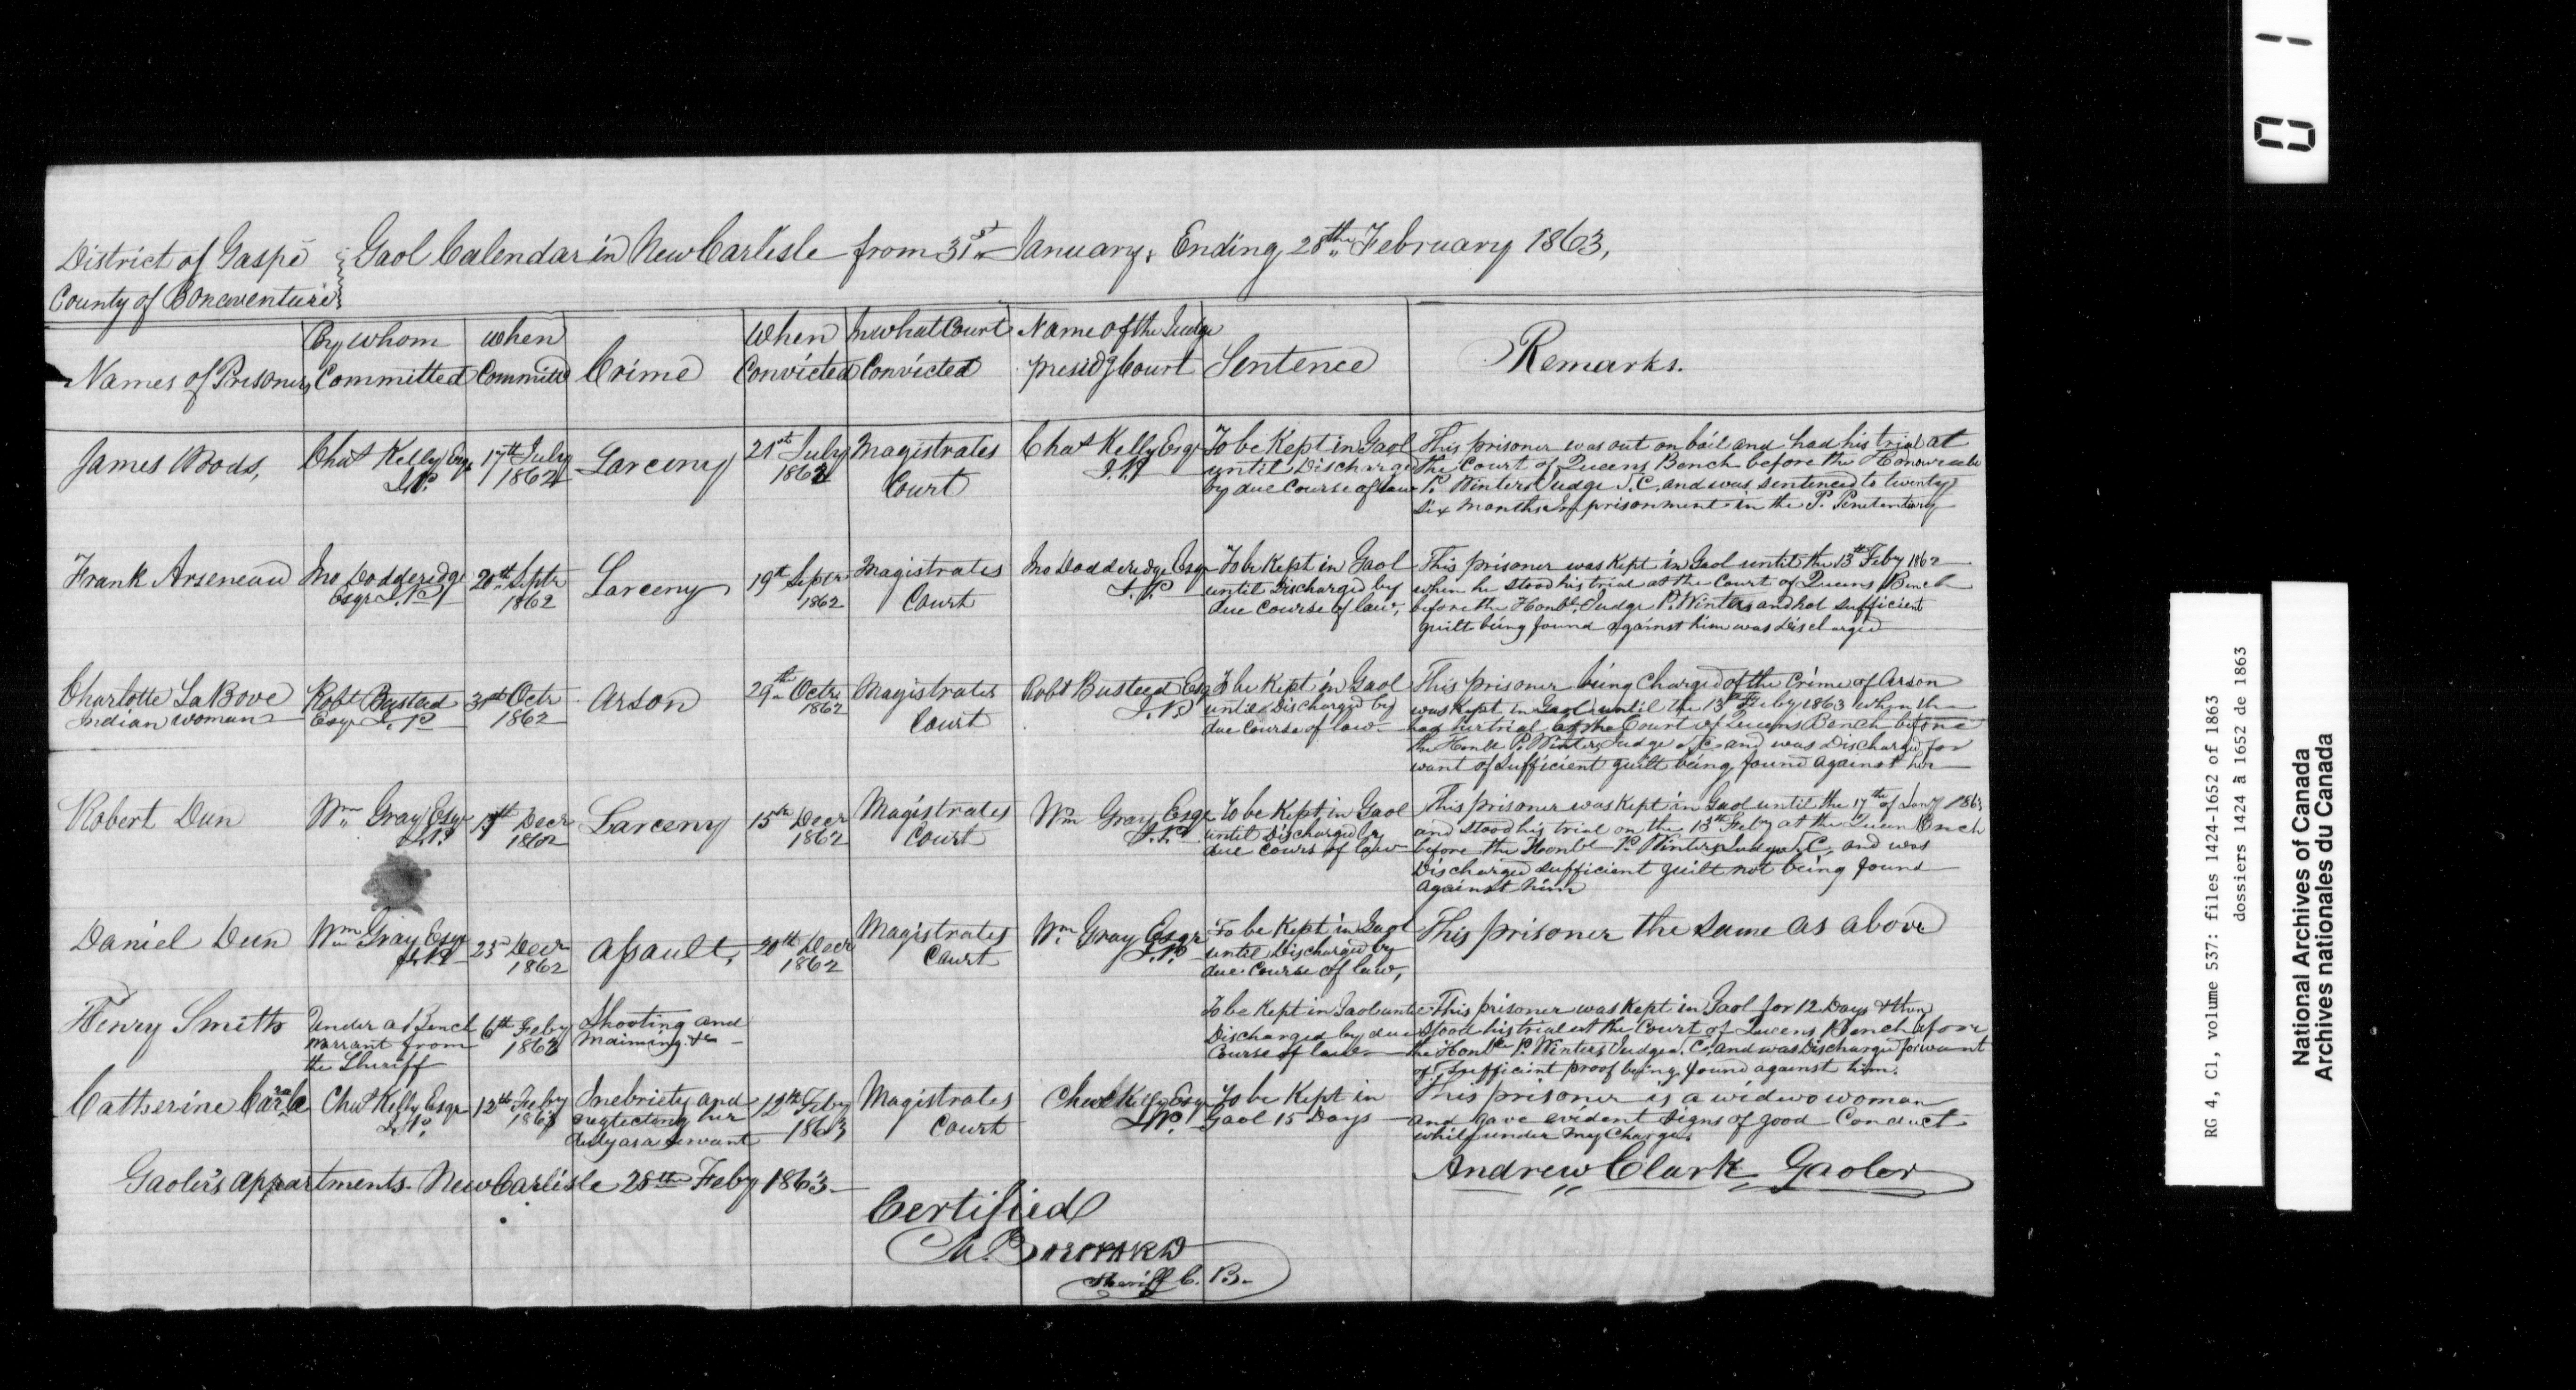 District of Gaspé
County of Bonaventure
Gaol Calendar in New Carlisle from 31st January, Ending 28th February 1863,
Names of Prisoners
By whom Committed
When Committd
Crime
When Convicted
In what Court Convicted
Name of the Judge presidg Court
Sentence
Remarks.
James Woods,
Chas Kelly Esqr
J.P.
17th July
1862
Larceny
21st July
1862
Magistrates
Court
Chas Kelly Esqr
J.P.
To be Kept in Gaol
until Discharged
by due Course of law
This prisoner was out on bail and had his trial at
the Court of Queens Bench before the Honourable
P. Winter Judge S.C. and was sentenced to twenty
six months Imprisonment in the P. Penetentiary
Frank Arseneau
Jno Dodderidge
Esqr J.P.
20th Septr
1862
Larceny
19th Sepr
1862
Magistrates
Court
Jno Dodderidge Esqr
J.P.
To be Kept in Gaol
until Discharged by
due Course of law,
This prisoner was Kept in Gaol until the 13th Feby 1862
when he stood his trial at the Court of Queens Bench
before the Honbl. Judge P. Winter and not sufficient
guilt being found against him was Discharged
Charlotte LaBove
Indian woman
Robt Busteed
Esqr J.P
31st Octr
1862
Arson
29th Octr
1862
Magistrates
Court
Robt Busteed Esqr
J.P.
To be Kept in Gaol
until Discharged by
due Course of law
This prisoner being Charged of the Crime of Arson
was Kept in Gaol until the 13th Feby 1863 when she
had her trial at the Court of Queens Bench before
the Honbl P. Winter Judge S.C. and was Discharged for
want of Sufficient guilt being found against her
Robert Dun
Wm Gray Esqr
J.P.
Decr
1862
Larceny
15th Decr
1862
Magistrates
Court
Wm Gray Esqr
J.P.
To be Kept in Gaol
until Discharged by
due Cours of law
This prisoner was Kept in Gaol until the 17th of Jany 1863
and stood his trial on the 13th Feby at the Queen Bench
before the Honbl P. Winter Judge S.C. and was
Discharged sufficient guilt not being found
against him
Daniel Dun
Wm Gray Esqr
J.P.
23 Decr
1862
Assault,
20th Decr
1862
Magistrates
Court
Wm Gray Esqr
J.P.
To be Kept in Gaol
until Discharged by
due Course of law,
This prisoner the same as above
Henry Smith
Under a Bench
Warrant from
the Sheriff
6th Feby
1863
Shooting and
Maiming &c
To be Kept in Gaol
Discharged by due
Course of law
This prisoner was Kept in Gaol for 12 Days & then
stood his trial at the Court of Queens Bench before
the Honble P. Winter Judge S.C. and was Discharged for want
of Sufficient proof being found against him.
Catherine
Chas Kelly Esqr
J.P.
12th Feby
1863
Inebriety and
neglecting her
duty as a servant
12th Feby
1863
Magistrates
Court
Chas Kelly Esqr
J.P.
To be Kept in
Gaol 15 Days
This prisoner is a widwo woman
and gave evident signs of good Conduct
whilst under my Charge.
Gaoler's appartments. New Carlisle 28th Feby 1863
Andrew Clark Gaoler
Certified
Sheriff C. B.
01
RG 4, C1, volume 537: files 1424-1652 of 1863
dossiers 1424 à 1652 de 1863
National Archives of Canada
Archives nationales du Canada